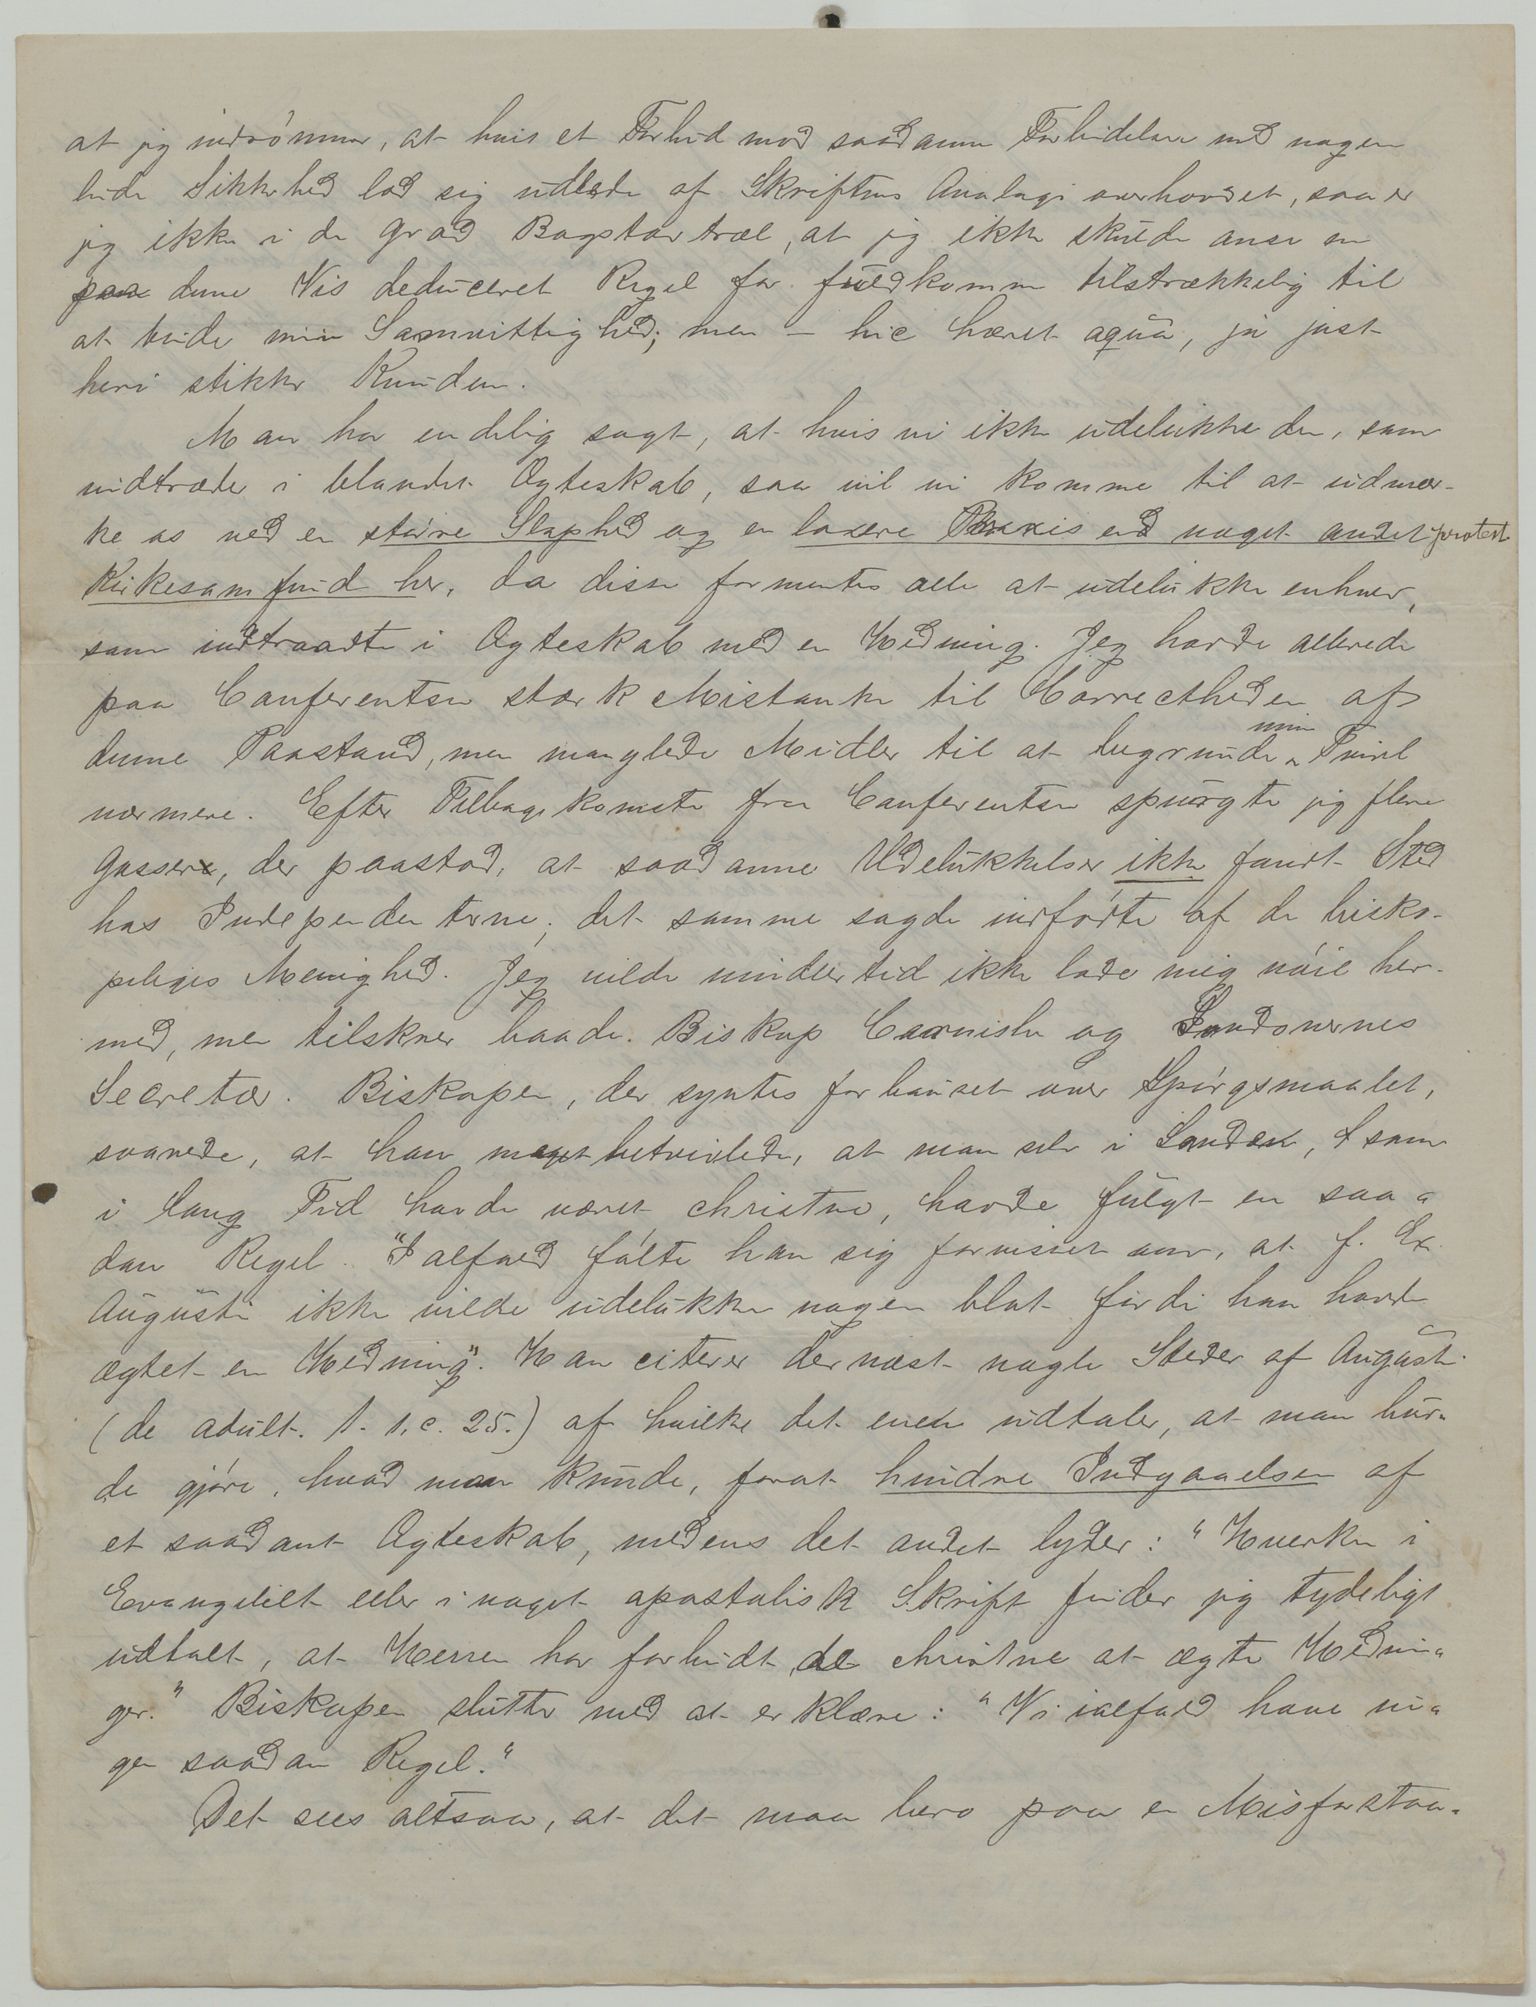 at jeg indrömmer, at hvis et Forbud mod saadanne Forbindelser med nogen-
lunde Sikkerhed lod sig udlede af Skriftens Analogi overhovedet, saa er
jeg ikke i de Grad Bogstavtræl, at jeg ikke skulde anse en
paa denne Vis deduceret Regel for fuldkommen tilstrækkelig til
at binde min Samvittighed; men – hic hæret aqua, ja just
heri stikker Knuden.
Man har endelig sagt, at hvis vi ikke udelukke den, som
indtræder i blandet Ægteskab, saa vil vi komme til at udmær-
ke os ved en större Slaphed og en laxere Praxis end noget andet protest.
Kirkesamfund her, da disse formentes alle at udelukke enhver,
som indtraadte i Ægteskab med en Hedning. Jeg havde allerede
paa Conferentsen stærk Mistanke til Correctheden af
denne Paastand, men manglede Midler til at begrunde min Tvivl
nærmere. Efter Tilbagekomsten fra Conferentsen spurgte jeg flere
Gassere, der paastod, at saadanne Udelukkelser ikke fandt Sted
hos Independenterne; det samme sagde indfödte af de bisko-
pelige Menighed. Jeg vilde imidlertid ikke lade mig nöie her-
med, men tilskrev baade Biskop Cornish og Londonernes
Secretær. Biskopen, der syntes forbauset over Spörgsmaalet,
svarede, at han meget betvivlede, at man selv i Lande, som
i lang Tid havde været christne, havde fulgt en saa-
dan Regel. "I alfald fölte han sig forvisset om, at f. Ex.
Augustin ikke vilde udelukke nogen blot fordi han havde
ægtet en Hedning". Han citerer dernæst nogle Steder af August.
(de adult. l. 1. c. 25.) af hvilke det ene udtaler, at man bur-
de gjöre, hvad man kunde, forat hindre Indgaaelsen af
et saadant Ægteskab, medens det andet lyder: "Hverken i
Evangeliet eller i noget apostolisk Skrift finder jeg tydeligt
udtalt, at Herren har forbudt de christne at ægte Hednin-
ger." Biskopen slutter med at erklære: "Vi ialfald have in-
gen saadan Regel."
Det sees altsaa, at det maa bero paa en Misforstaa-